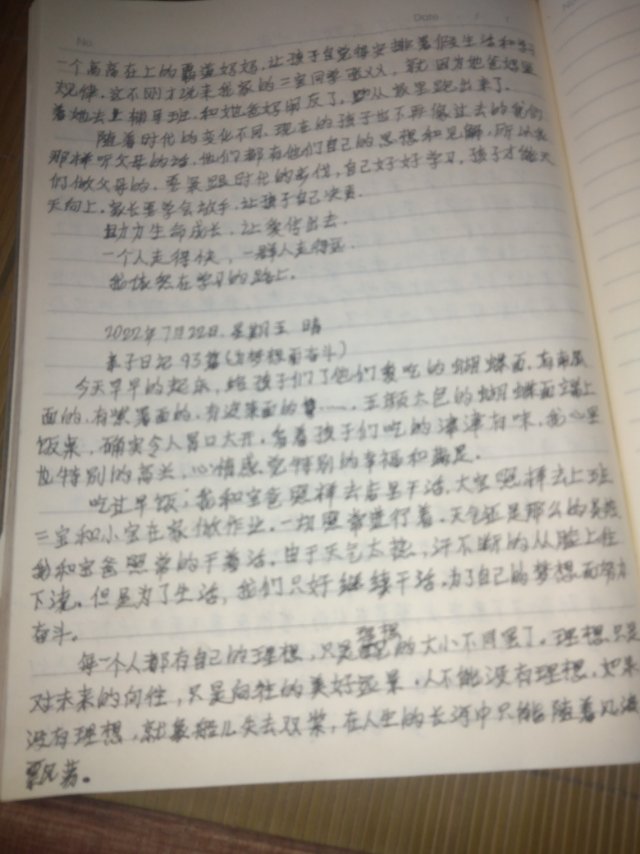 No.
Date
一个高高在上的霸道妈妈，让孩子自觉得安排着假生活和学习
规律，这不刚才说来我家的三宝同学张义义，就因为她爸妈逼
着她去上辅导班，和她爸妈闹反了，从家里跑出来了。
随着时代的变化不同，现在的孩子也不再像过去的我们
那样听父母的话，他们都有他们自己的思想和见解，所以我
们做父母的，要紧跟时代的步伐，自己好好学习，孩子才能天
天向上，家长要学会放手，让孩子自己决策。
助力生命成长，让爱传出去。
一个人走得快，一群人走得远。
我依然在学习的路上。
2022年7月22日 星期五 晴
亲子日记 93篇（为梦想而奋斗）
今天早早的起来，给孩子们做了他们爱吃的蝴蝶面，有南瓜
面的，有紫薯面的，有菠菜面的……，五颜六色的蝴蝶面端上
饭桌，确实令人胃口大开，看着孩子们吃的津津有味，我心里
也特别的高兴，心情感觉特别的幸福和满足。
吃过早饭；我和宝爸照样去店里干活，大宝照样去上班
二宝和小宝在家做作业，一切照常进行着，天气还是那么的炎热
我和宝爸照常的干着活，由于天气太热，汗不断的从脸上往
下流，但是为了生活，我们只好继续干活，为了自己的梦想而努力
奋斗。
每一个人都有自己的理想，只是理想的大小不同罢了。理想只是
对未来的向往，只是向往的美好愿景，人不能没有理想，如果
没有理想，就象船儿失去双桨，在人生的长河中只能随着风浪
飘荡。